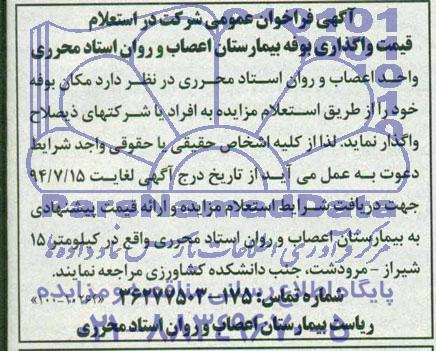 آگهی فراخوان عمومی شرکت در استعلام
قیمت واگذاری بوفه بیمارستان اعصاب و روان استاد محرری
واحد اعصاب و روان استاد محرری در نظر دارد مکان بوفه
خود را از طریق استعلام مزایده به افراد یا شرکتهای ذیصلاح
واگذار نماید. لذا از کلیه اشخاص حقیقی یا حقوقی واجد شرایط
دعوت به عمل می آید از تاریخ درج آگهی لغایت ۹۴/۷/۱۵
جهت دریافت شرایط استعلام مزایده و ارائه قیمت پیشنهادی
به بیمارستان اعصاب و روان استاد محرری واقع در کیلومتر ۱۵
شیراز - مرودشت، جنب دانشکده کشاورزی مراجعه نمایند.
شماره تماس: ۱۷۵-۳۶۲۷۷۵۰۳
ریاست بیمارستان اعصاب و روان استاد محرری
ParsNamadData